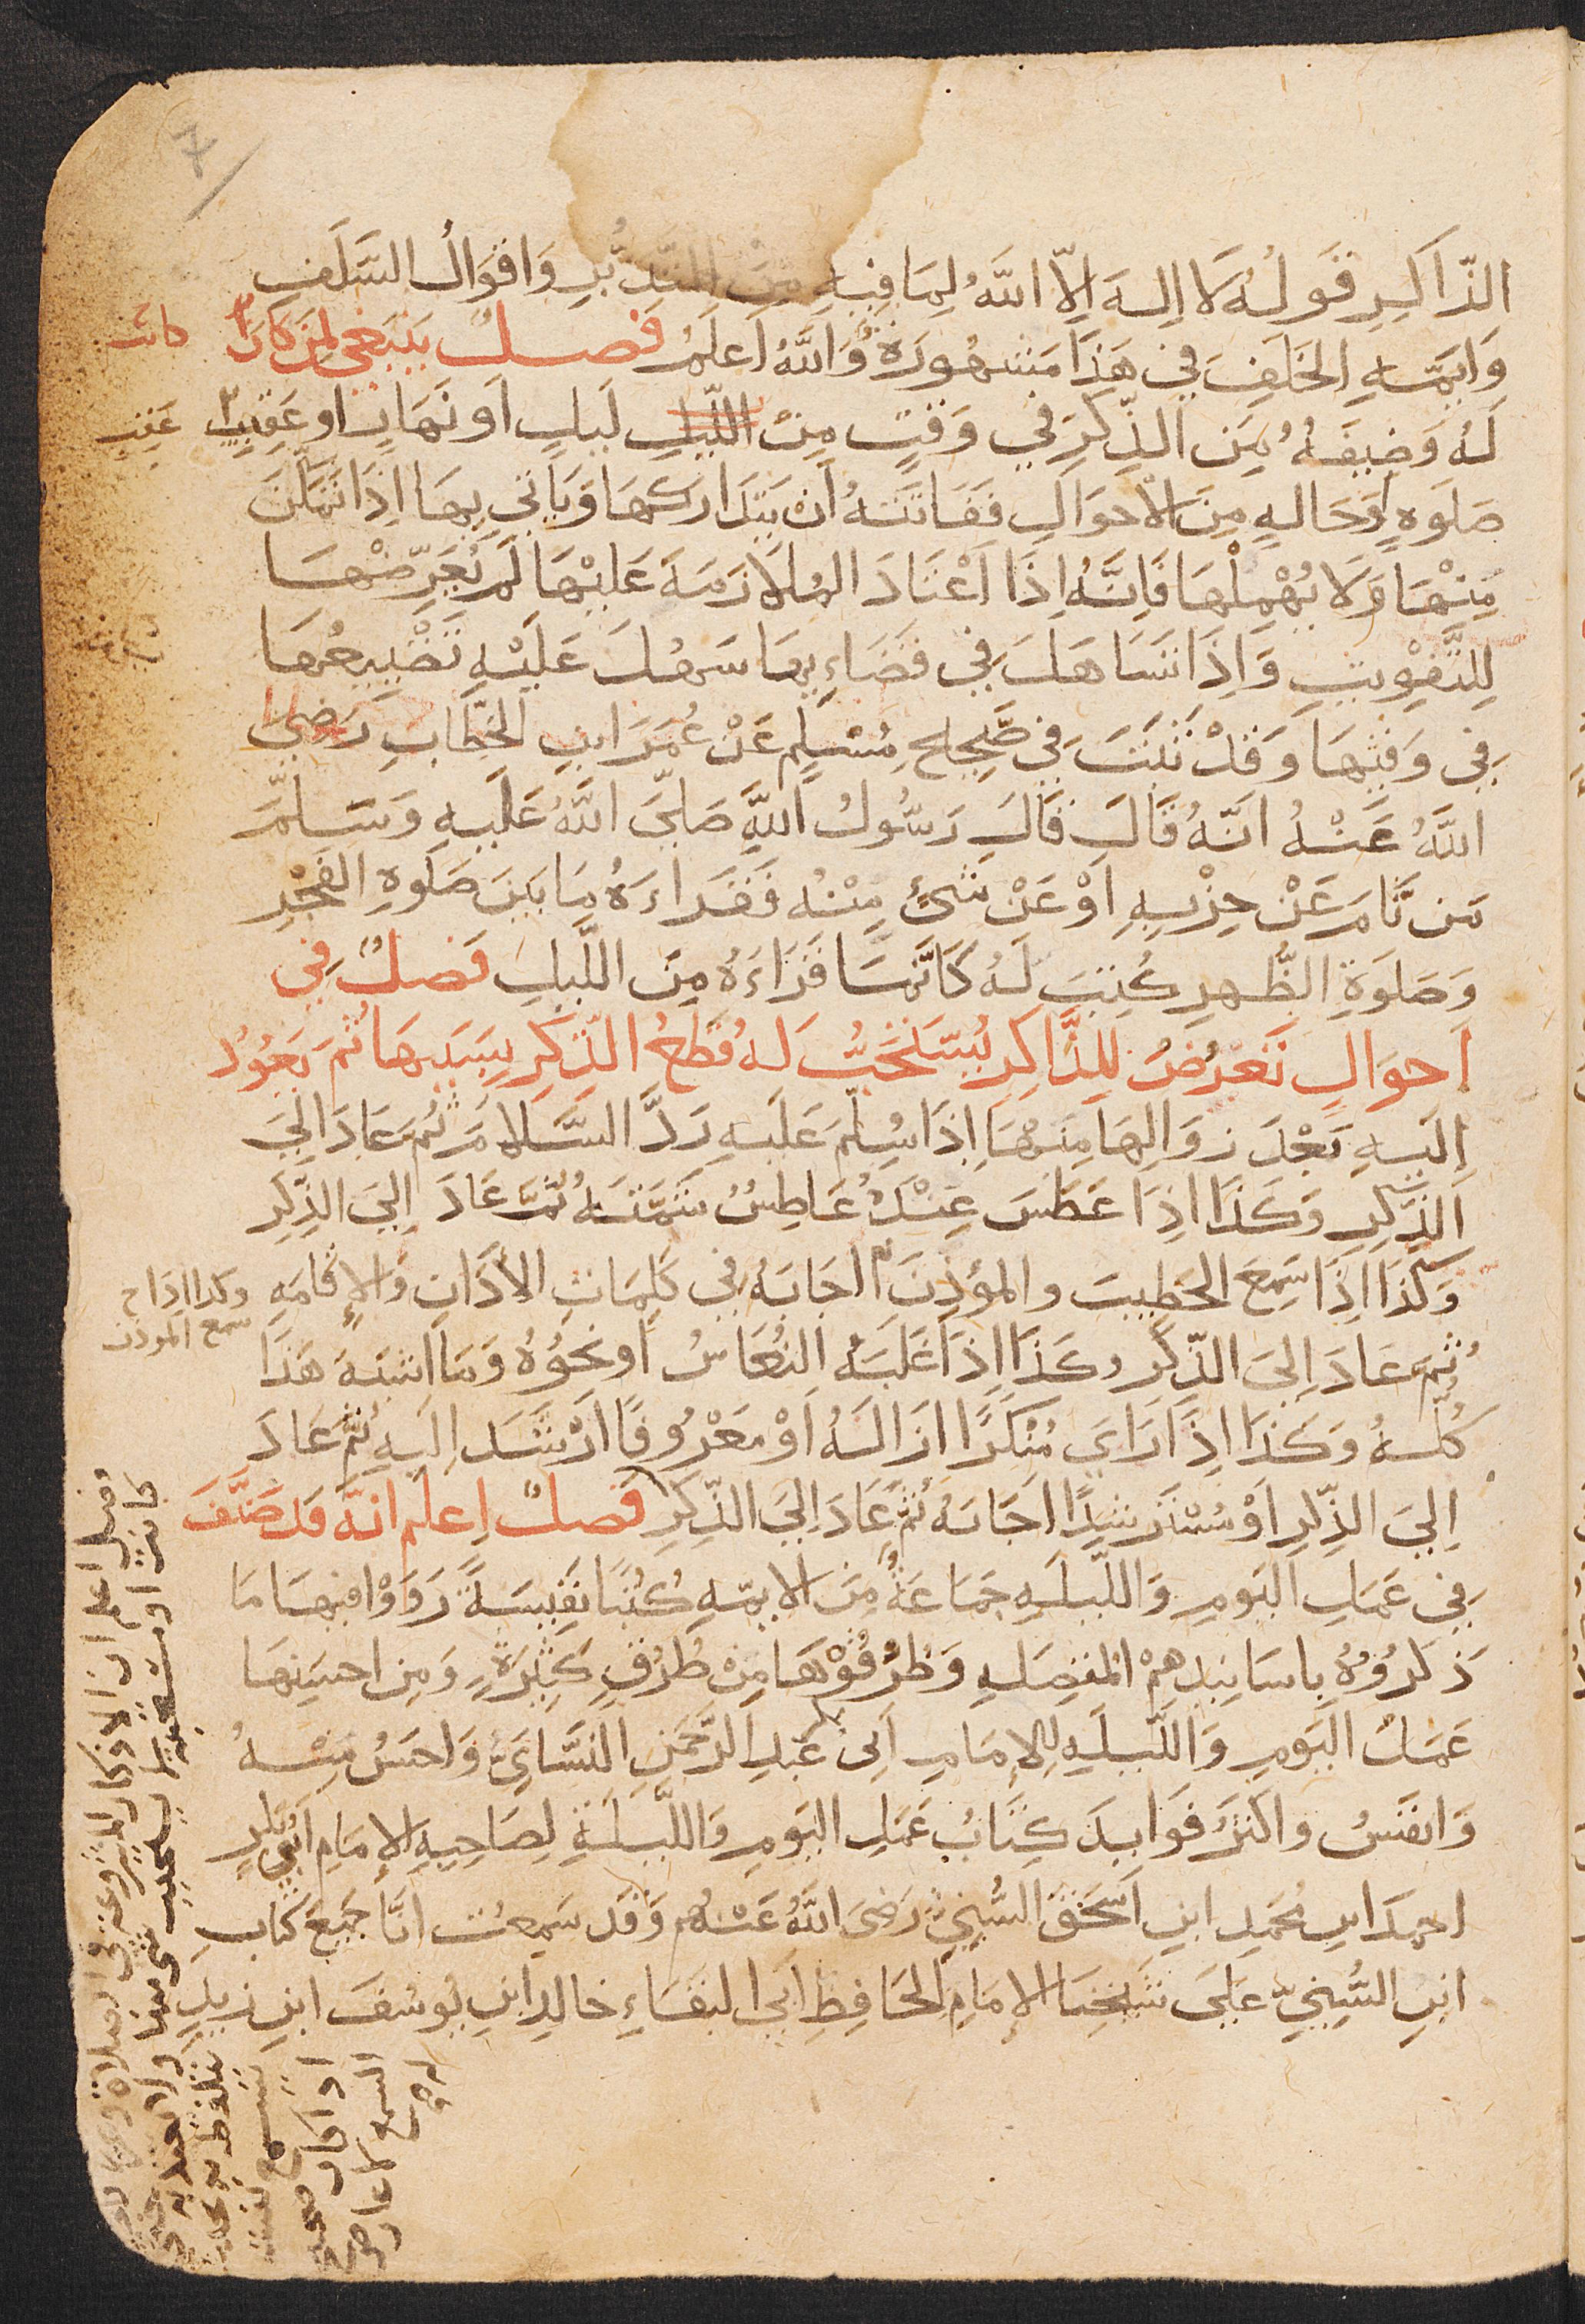 الذّاكِرِ قَولُهُ لَا اِلهَ اِلّا اللّهُ لِمَا فِيهِ مِنَ التّدَبُّرِ وَاَقوَالُ السَّلَفِ
وَايمّةِ الخَلَفِ فِي هَذَا مَشهُورَةٌ وَاللَّهُ اَعلَمُ فَصلٌ يَنبَغِي لِمَن كَانَ
كانت
لَهُ وَضِيفَهُ مِنَ الذِّكرِ في وَقتٍ مِنْ اللّيلِ لَيلٍ اَو نَهَارٍ او عَقِيبَ
عَقِيبَ
صَلَوةٍ اَوحَالةٍ مِنَ الاَحوَالِ فَفَاتَتهُ اَن يَتَدَارَكهَا وَيَاتي بِهَا اِذَا تَمَكّنَ
مِنهَا وَلَا يُهْمِلْهَا فَاِنَّهُ اِذَا اَعْتَادَ المُلَازَمَةَ عَلَيْهَا لَم يُعَرِّضْهَا
لِلتَّفوِيتِ وَاِذَا تَسَاهَلَ فِي قَضَاءِيهَا سَهُلَ عَلَيْهِ تَضْيِيعُهَا
فِي وَقتِهَا وَقَدْ ثَبَتَ فِي صَحِيحِ مُسلِم عَنْ عُمَرَ ابنِ الخَطّابِ رَضِيَ
اللَّهُ عَنْهُ انّهُ قَالَ قَالَ رَسُولُ اللَّهِ صَلىَّ اللَّهُ عَلَيهِ وَسَلمَّ
مَن نَّامَ عَنْ حِزْبِهِ اَوْ عَنْ شَيءٍ مِنْهُ فَقَرَاءَهُ مَا بَينَ صَلَوةِ الفَجْرِ
وَصَلَوةِ الظُّهرِ كُتِبَ لَهُ كَاَنَّمَا قَرَاءَهُ مِنَ اللَّيلِ فَصلٌ فِي
اَحوَالٍ تَعْرُضُ لِلذَّاكِرِ يُستَحَبُّ لَهُ قَطعُ الذّكرِ بِسَبَبِهَا ثُمَّ يَعُودُ
اِلَيهِ بَعْدَ زوَالِهَا مِنهَا اِذَا سُلِّمَ عَلَيهِ رَدَّ السَّلَامَ ثُمَّ عَادَ اِلىَ
الذّكرِ وَكَذَا اِذَا عَطَسَ عِندَهُ عَاطِسٌ شَمَّتَهُ ثُمَّ عَادَ اِلىَ الذِّكرِ
وَكَذَا اِذَا سَمِعَ الخَطِيبَ والمؤذِنَ اَجَابَهُ فِي كَلِمَاتِ الأَذَانِ وَالإِقَامَةِ
وكذا اذا
سمع الموذن
ثُمَّ عَادَ اِلىَ الذّكرِ وكَذَا اِذَا غَلَبَهُ النُعَاسُ اَو نحوُهُ وَمَا اشبَهَ هَذَا
كُلّهُ وَكَذَا اِذَا رَايَ مُنْكَرًا ازَالَهُ اَوْ مَعْرُوفًا ارْشَدَ اِلَيهِ ثُمَّ عَادَ
اِليَ الذِّكرِ اَوْ مُسْتَرشِدًا اَجَابَهُ ثُمَّ عَادَ اِلىَ الذِّكرِ فَصلٌ اِعلَم انّهُ قَد صَنَّفَ
فِي عَمَلِ اليَومِ وَاللّيلَةِ جَمَاعَةٌ مِنَ الايمّةِ كُتُبًا نَفِيسَةً رَوَوْا فِيهَا مَا
ذَكَرُوهُ باسَانيدِهِمْ المُتصِلَةِ وَطُرُقُوهَا مِنْ طُرُقٍ كَثِيرَةٍ وَمِن احسَنِهَا
عَمَلُ اليَومِ وَاللّيلَةِ لِلإِمَامِ اَبي عَبدِ الرَّحمَنِ النَّسَائيُّ وَاحسَنُ مِنْهُ
وَانفَسُ واكثَرُ فَوَايدَ كِتَابُ عَمَلِ اليَومِ وَاللّيلَةِ لِصَاحِبِهِ الإِمَامِ اَبيِ بَكرٍ
احمدَ ابنِ مُحَمدِ ابنِ اسحَقَ السُّنِيّ رَضِيَ اللَّهُ عَنهُم وَقَد سَمِعتُ انَا جَمِيعَ كتابِ
ابنِ السُّنيّ عَلىَ شَيخِنَا الإِمَامِ الحَافِظِ اَبي البَقَاءِ خَالِدِ ابنِ يُوسُفَ ابنِ زَيدٍ
فصل اعلم ان الاذكار المشروعة في الصلاة
كانت او مستحبة لا يحسب شي منها
يتلفظ به
يسمع نفسه
اذا كان صحيح
السمع لا عارض
له